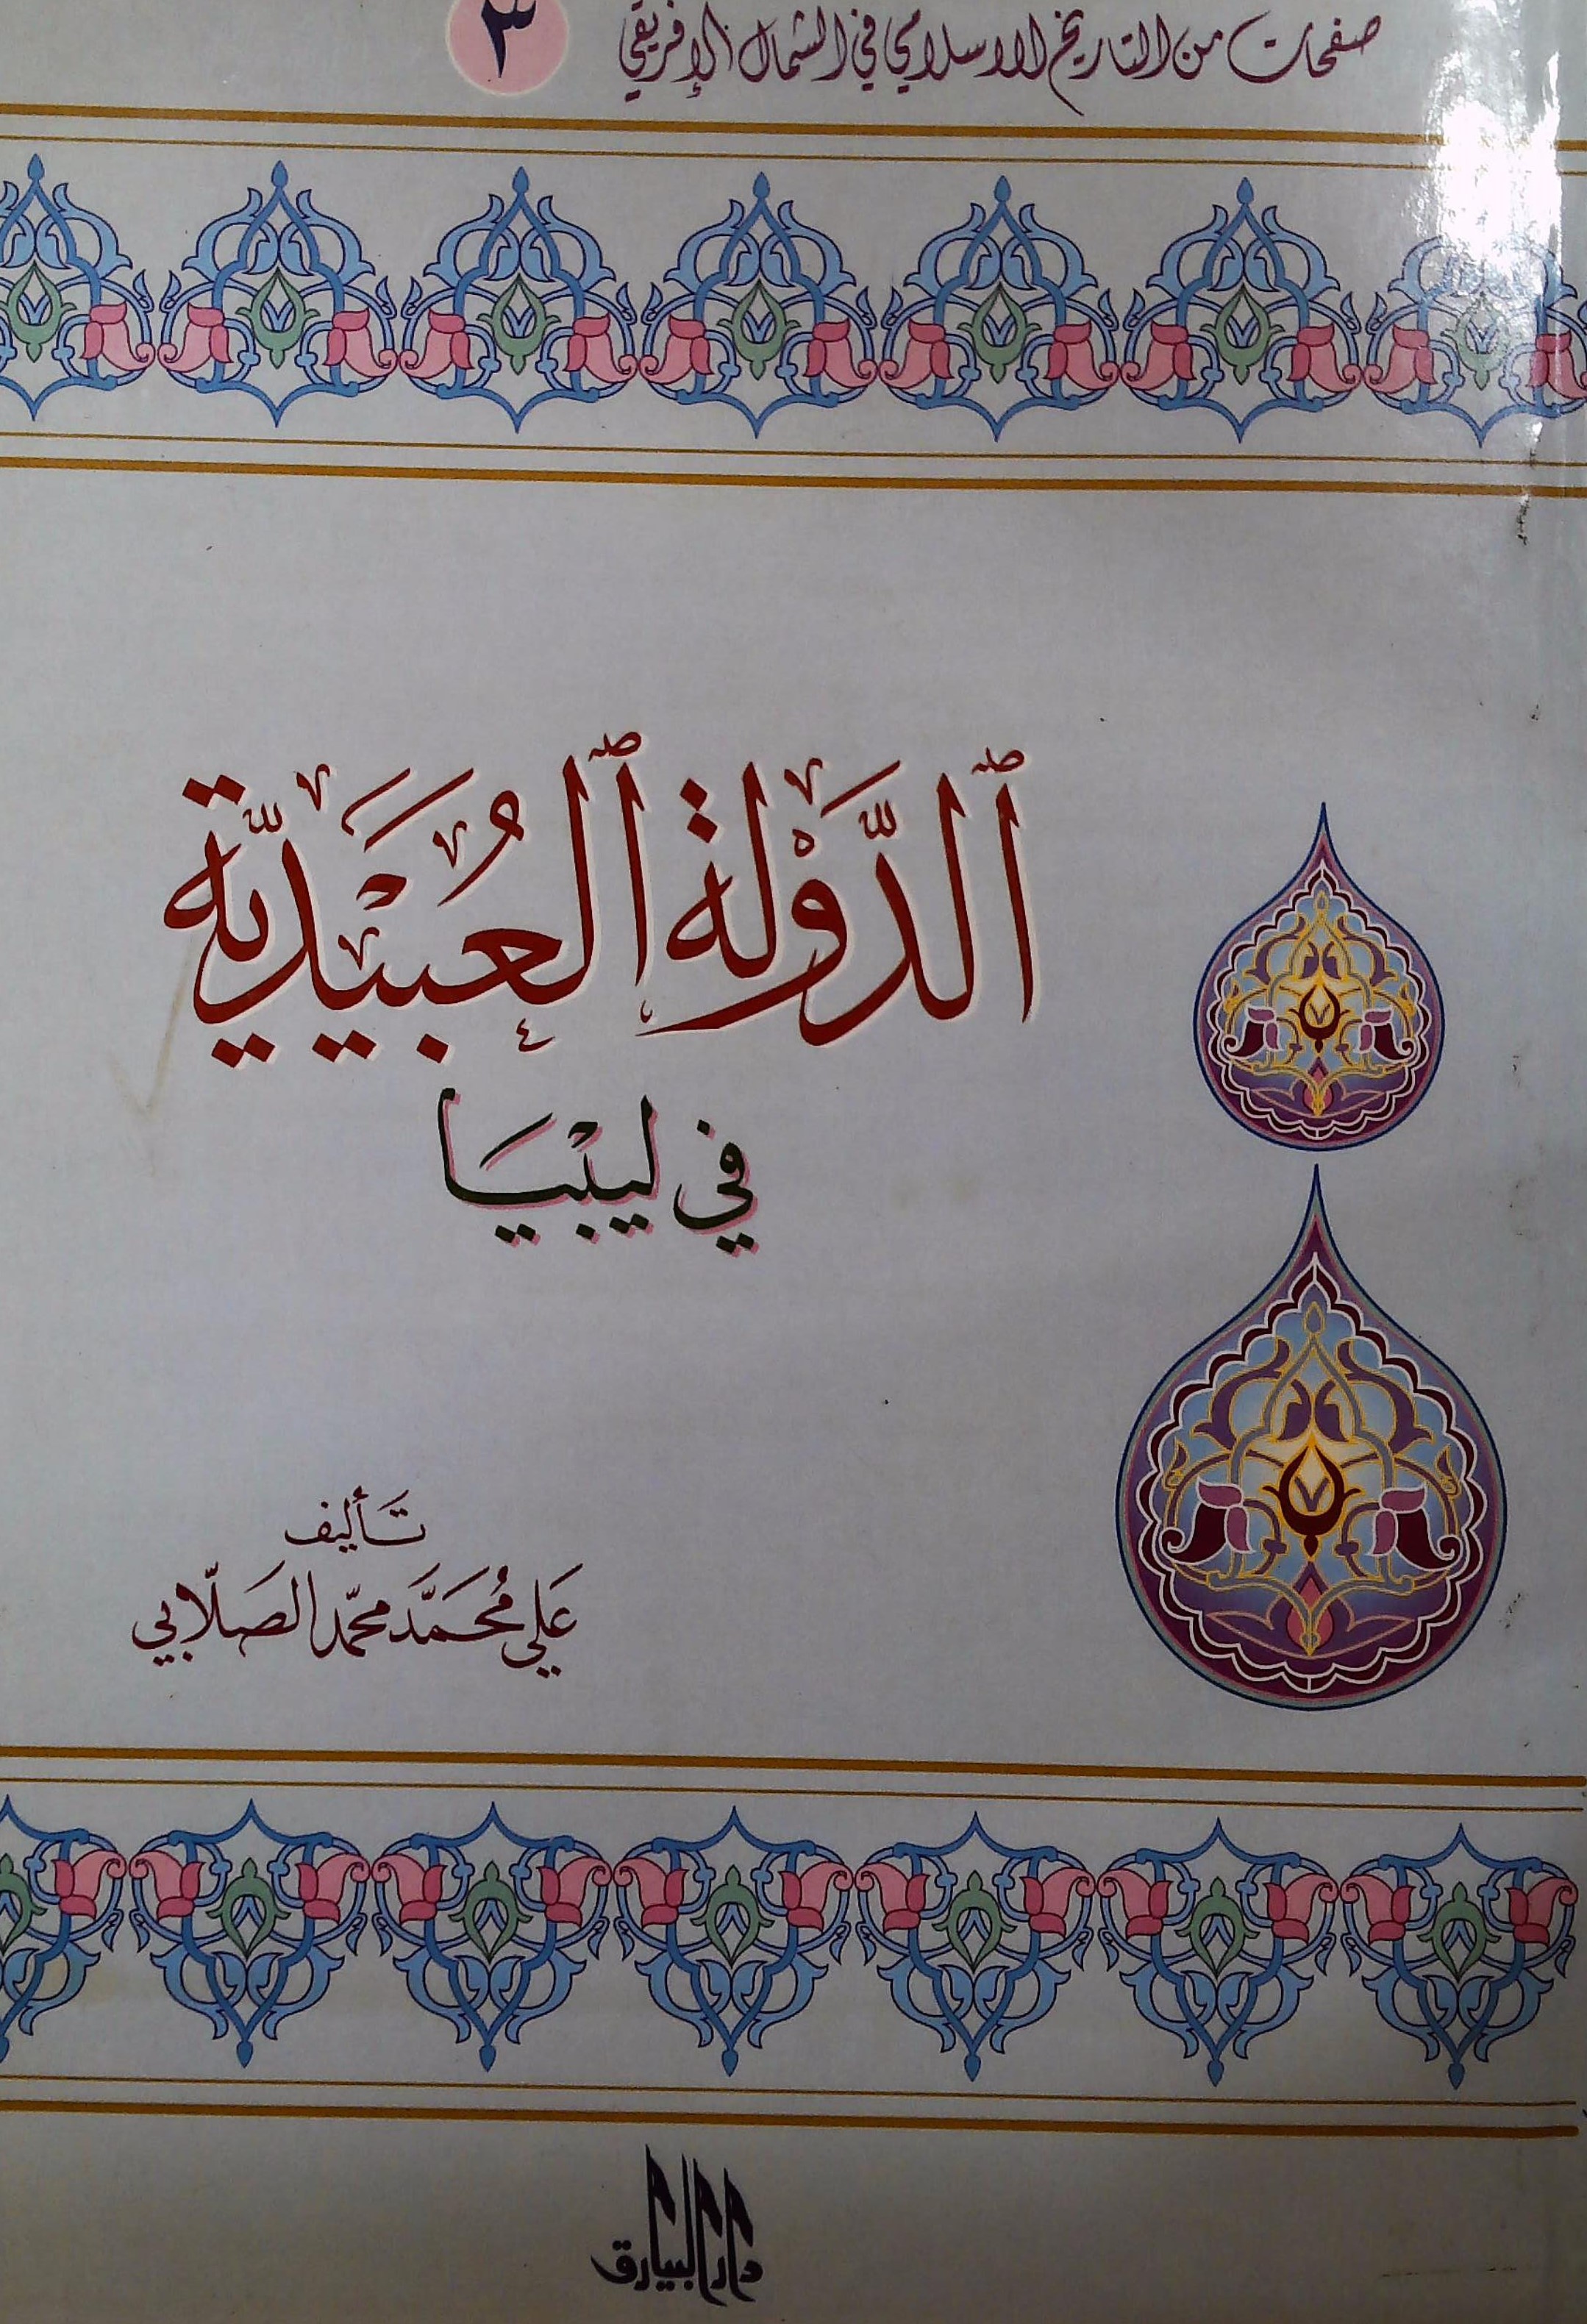 صفحات من التاريخ الإسلامي في الشمال الإفريقي ٣
ٱلدَّوْلَة ٱلعُبَيْدِيَّة
في ليْبيَا
تَأليف
عَلي مُحَمَّد محمّد الصَلّابي
دار البيارق